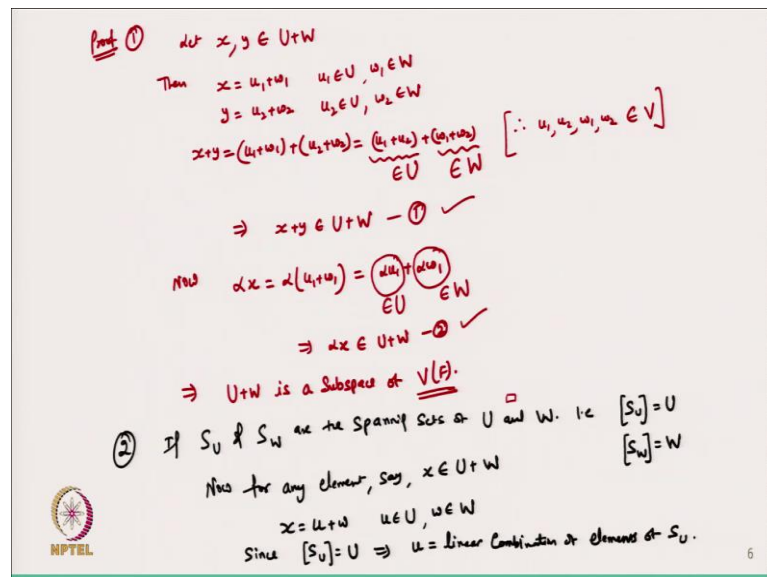 Proof ① Let x, y ∈ U+W
Then x = u₁+w₁ u₁∈U, w₁∈W
y = u₂+w₂ u₂∈U, w₂∈W
x+y = (u₁+w₁)+(u₂+w₂) = (u₁+u₂)+(w₁+w₂) [∴ u₁, u₂, w₁, w₂ ∈ V]
∈U ∈W
⇒ x+y ∈ U+W – ① ✓
Now αx = α(u₁+w₁) = αu₁ + αw₁
∈U ∈W
⇒ αx ∈ U+W – ② ✓
⇒ U+W is a Subspace of V(F).
② If S_U & S_W are the Spannig Sets of U and W. i.e [S_U] = U
[S_W] = W
Now for any element, say, x ∈ U+W
x = u+w u∈U, w∈W
Since [S_U] = U ⇒ u = linear Combination of elements of S_U.
NPTEL
6